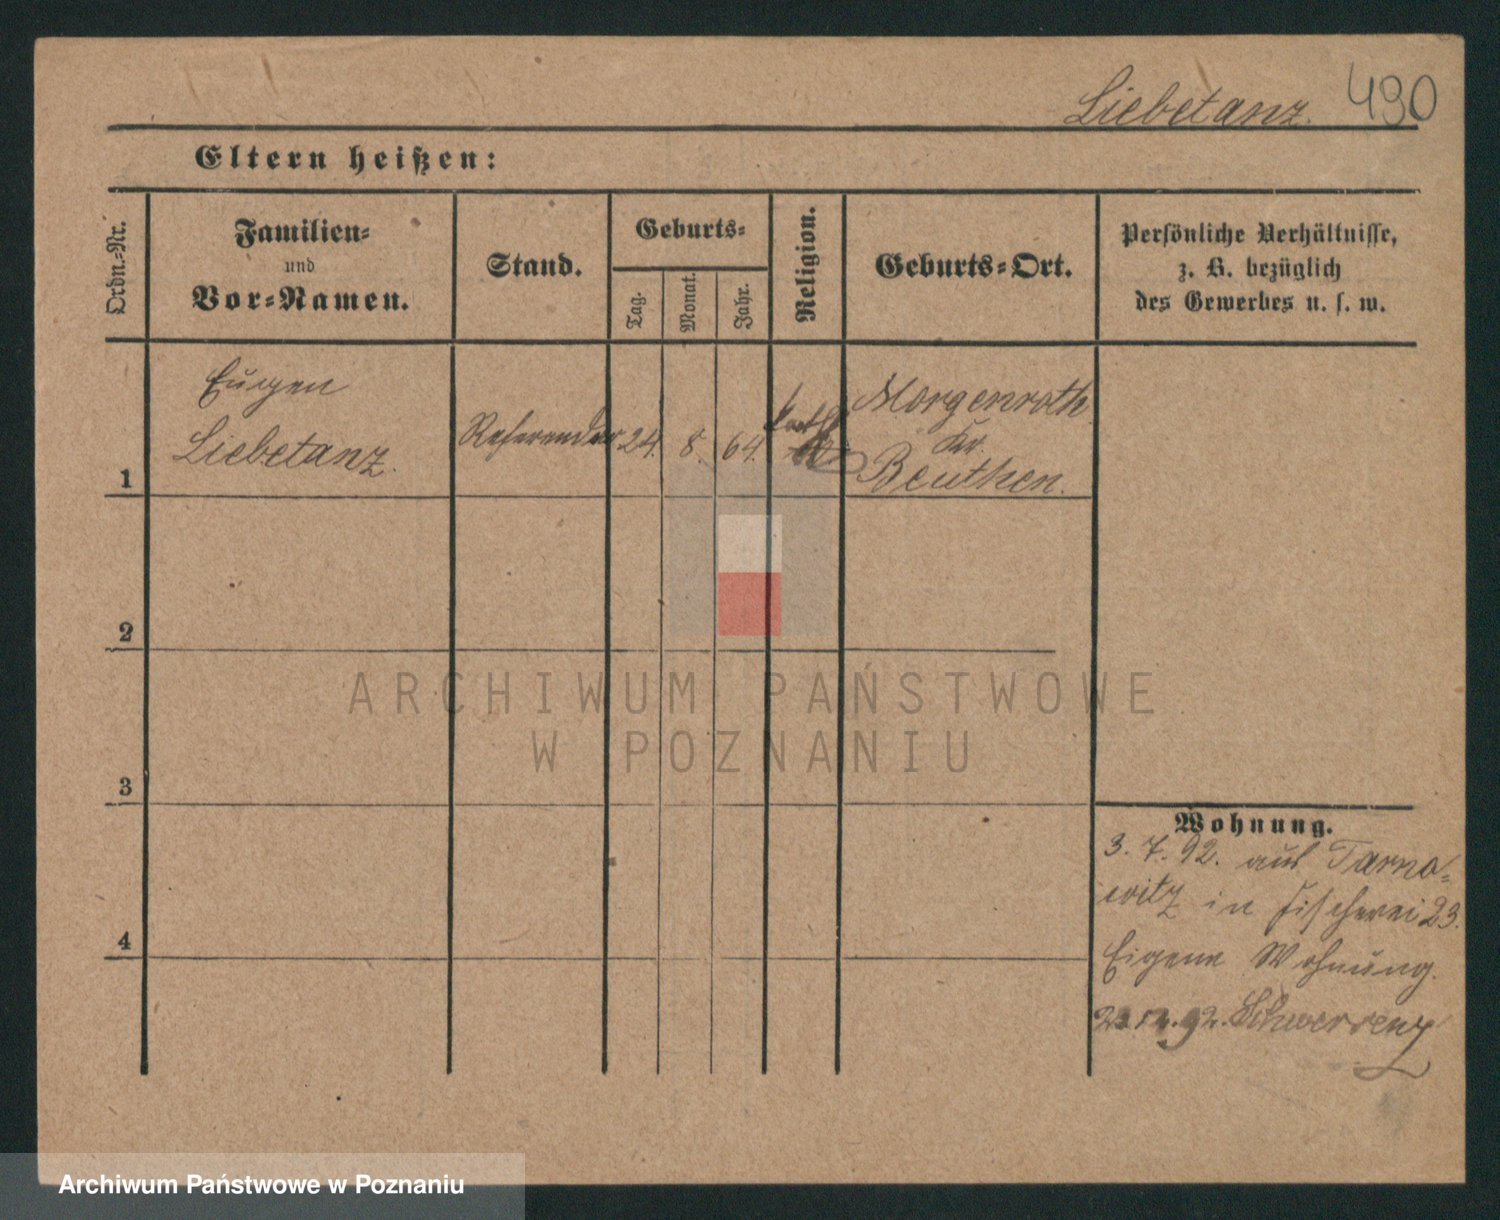 Liebetanz. 490
Eltern heißen:
Ordn.-Nr.
Familien-
und
Vor-Namen.
Stand.
Geburts-
Tag.
Monat.
Jahr.
Religion.
Geburts-Ort.
Persönliche Verhältnisse,
z. B. bezüglich
des Gewerbes u. s. w.
1
Eugen
Liebetanz.
Referendar
24.
8.
64.
kath
Morgenroth
Kr.
Beuthen.
2
3
4
Wohnung.
3. 7. 92. aus Tarno-
witz in Fischerei 23.
Eigene Wohnung.
12. 92. Schwersenz
ARCHIWUM PAŃSTWOWE
W POZNANIU
Archiwum Państwowe w Poznaniu